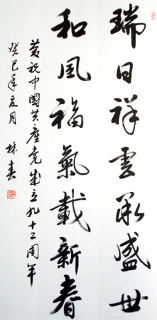 瑞日祥雲歌盛世
和風福氣載新春
慶祝中國共產党成立九十二周年
癸巳年夏月 林春